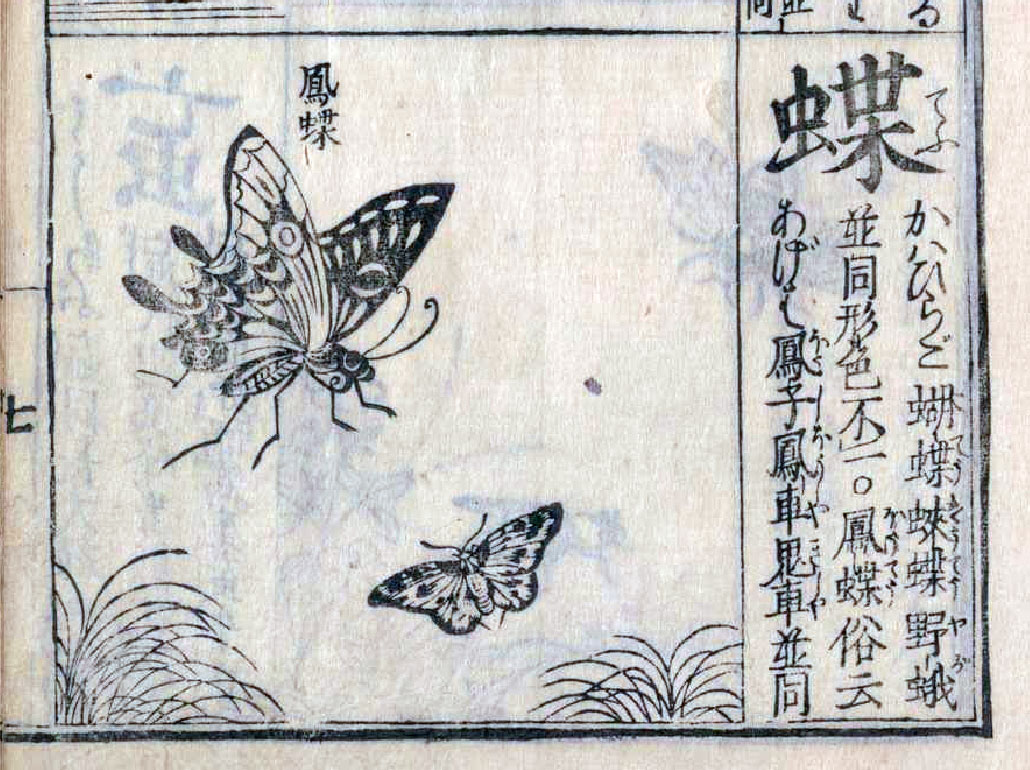 蝶
てふ
かはひらご 蝴蝶 蛺蝶 野蛾
並同形色不一。鳳蝶俗云
あげは 鳳子鳳車鬼車並同
鳳蝶
七